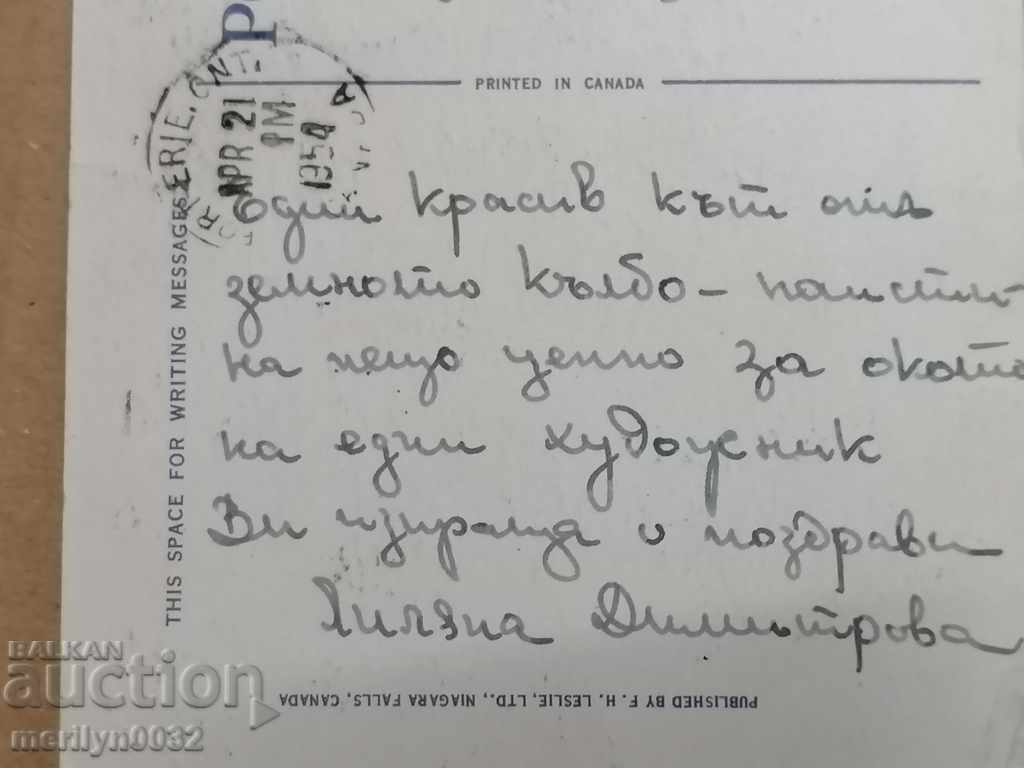 PRINTED IN CANADA
ERIE, ONT.
APR 21
PM
195
THIS SPACE FOR WRITING MESSAGES
Един красив кът от
земното кълбо –
на нещо ценно за окото
на един художник
Ви изпраща и поздрави
Димитрова
PUBLISHED BY F. H. LESLIE, LTD., NIAGARA FALLS, CANADA
BALKAN
auction
merilyn0032